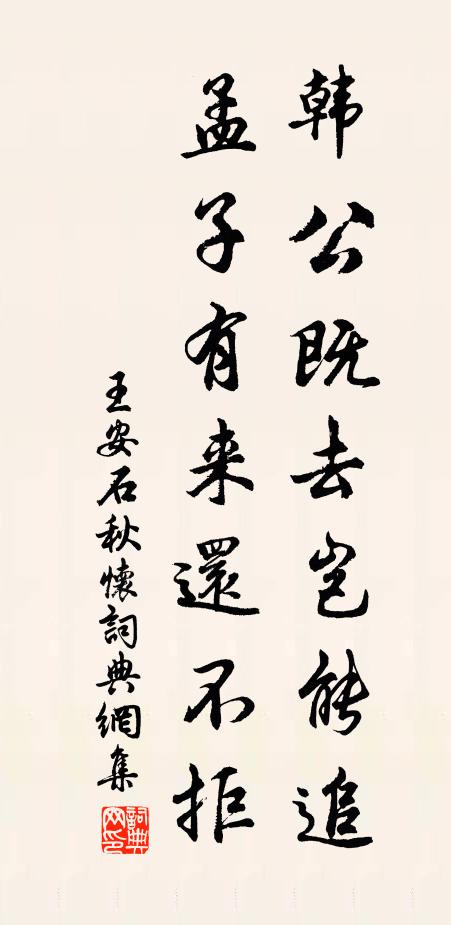 韩公既去岂能追
孟子有来還不拒
王安石秋懷詞典網集
詞典网印